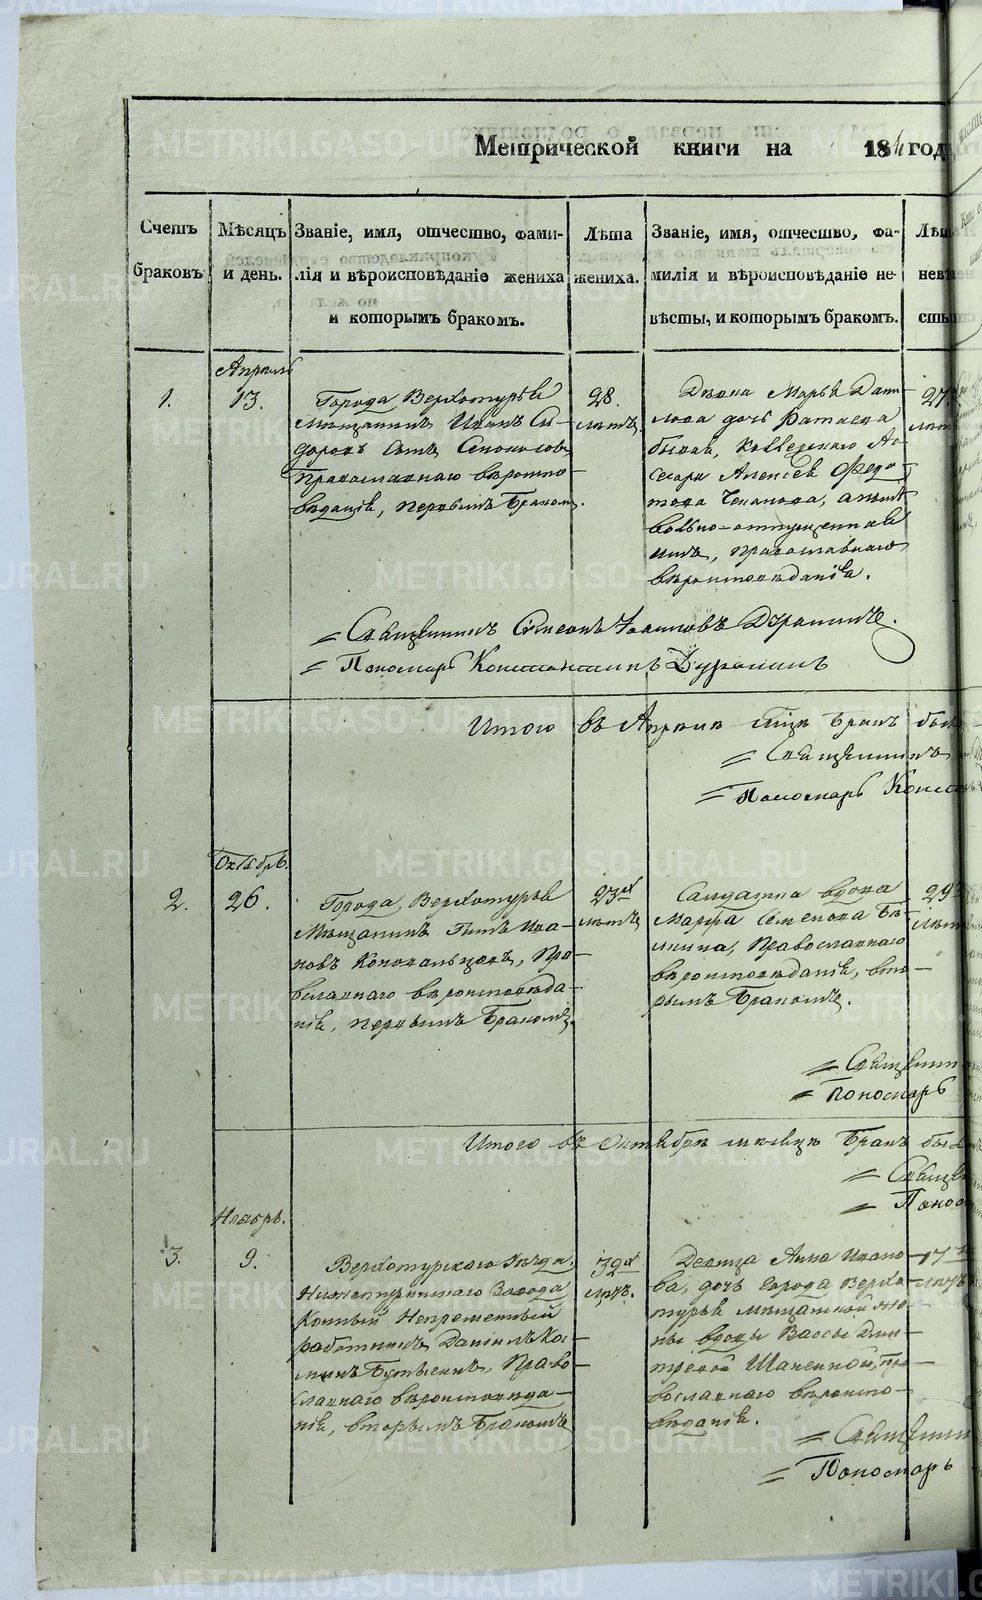 Метрической книги на 184 год
Счетъ браковъ
Мѣсяцъ и день.
Званіе, имя, отчество, фами-
лія и вѣроисповѣданіе жениха
и которымъ бракомъ.
Лѣта
жениха.
Званіе, имя, отчество, фа-
милія и вѣроисповѣданіе не-
вѣсты, и которымъ бракомъ.
Лѣта
невѣ
сты
1.
Апрѣль
13.
Города Верхотурья
мѣщанинъ Иванъ Си-
доровъ сынъ
Православнаго вѣроиспо-
вѣданія, первымъ бракомъ.
28.
лѣтъ
Девка Марья Дани-
лова дочь
бывая, Коллежскаго Ас-
сесора Алексѣя Ѳедо-
това, а нынѣ
вольно-отпущенная
Православнаго
вѣроисповѣданія.
27
лѣт
Священникъ Симеонъ Іоанновъ
Пономарь Константинъ
Итого въ Апрѣлѣ мцѣ бракъ
Священникъ
Пономарь Конс
2.
Октябрь.
26.
Города Верхотурья
Мѣщанинъ Петръ Ива-
новъ Коновальцовъ, Пра-
вославнаго вѣроисповѣда-
нія, первымъ бракомъ.
23х
лѣтъ
Салдатка вдова
Марфа Семенова
Православнаго
вѣроисповѣданія, вто-
рымъ бракомъ.
29
лѣт
Священни
Пономарь
Итого въ Октябрѣ мѣсяцѣ бракъ бы
Свяще
Поно
3.
Ноябрь.
9.
Верхотурскаго Уѣзда,
Нижнетуринскаго Завода
Конный Непремѣнный
работникъ Даніилъ Кос-
минъ Право-
славнаго вѣроисповѣда-
нія, вторымъ бракомъ
32х
лѣтъ.
Девица Анна Ивано-
ва, дочь Города Верхо-
турья мѣщанской же-
ны вдовы Вассы Дми-
тревой Пра-
вославнаго вѣроиспо-
вѣданія.
17
лѣтъ
Священни
Пономарь
METRIKI.GASO-URAL.RU